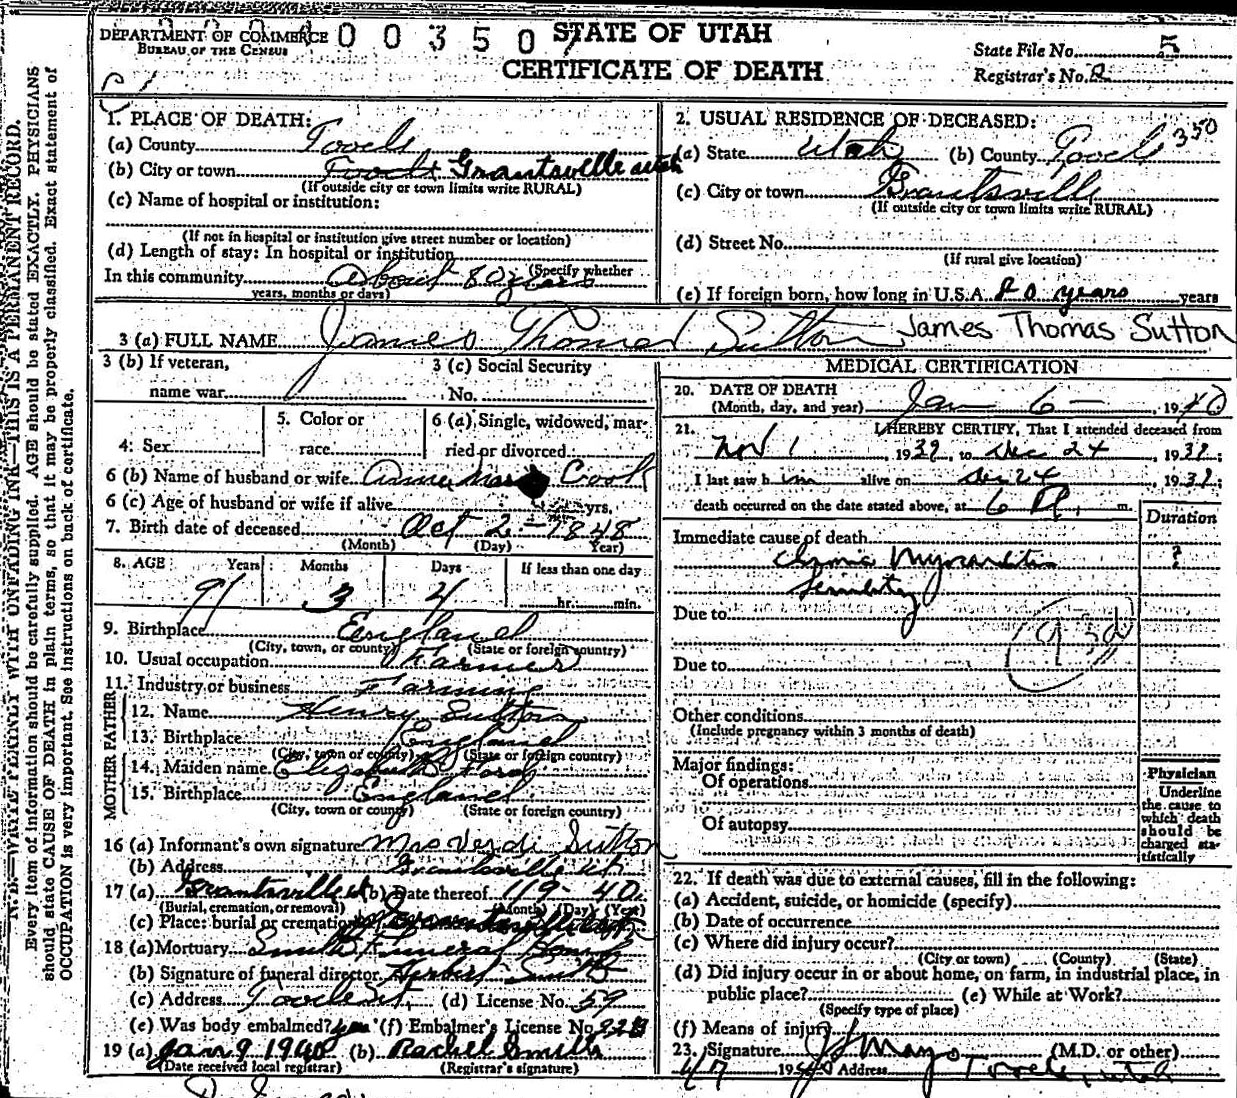 DEPARTMENT OF COMMERCE
BUREAU OF THE CENSUS
00350
STATE OF UTAH
CERTIFICATE OF DEATH
State File No. 5
Registrar's No. 2
N. B.—WRITE PLAINLY WITH UNFADING INK—THIS IS A PERMANENT RECORD.
Every item of information should be carefully supplied. AGE should be stated EXACTLY. PHYSICIANS
should state CAUSE OF DEATH in plain terms, so that it may be properly classified. Exact statement of
OCCUPATION is very important. See instructions on back of certificate.
1. PLACE OF DEATH:
(a) County Tooele
(b) City or town Tooele Grantsville utah
(If outside city or town limits write RURAL)
(c) Name of hospital or institution:
(If not in hospital or institution give street number or location)
(d) Length of stay: In hospital or institution
(Specify whether
In this community about 80 years
years, months or days)
2. USUAL RESIDENCE OF DECEASED:
350
(a) State Utah (b) County Tooele
(c) City or town Grantsville
(If outside city or town limits write RURAL)
(d) Street No.
(If rural give location)
(e) If foreign born, how long in U.S.A. 80 years years
3 (a) FULL NAME James Thomas Sutton James Thomas Sutton
3 (b) If veteran,
name war
3 (c) Social Security
No.
4. Sex
5. Color or
race
6 (a) Single, widowed, mar-
ried or divorced
6 (b) Name of husband or wife Cook
6 (c) Age of husband or wife if alive yrs.
7. Birth date of deceased Oct 2 - 1848
(Month) (Day) (Year)
8. AGE Years Months Days If less than one day
91 3 4 hr. min.
9. Birthplace England
(City, town, or county) (State or foreign country)
10. Usual occupation Farmer
11. Industry or business Farming
FATHER
12. Name Henry Sutton
13. Birthplace England
(City, town or county) (State or foreign country)
MOTHER
14. Maiden name Elizabeth Ford
15. Birthplace England
(City, town or county) (State or foreign country)
16 (a) Informant's own signature Mrs Verdi Sutton
(b) Address Grantsville ut
17 (a) Grantsville ut (b) Date thereof 1 19 - 40
(Burial, cremation, or removal) (Month) (Day) (Year)
(c) Place: burial or cremation Grantsville
18 (a) Mortuary Smith Funeral Home
(b) Signature of funeral director Herbert Smith
(c) Address Tooele ut. (d) License No. 59
(e) Was body embalmed? yes (f) Embalmer's License No.
19 (a) Jan 9 1940 (b) Rachel Smith
(Date received local registrar) (Registrar's signature)
MEDICAL CERTIFICATION
20. DATE OF DEATH
(Month, day, and year) Jan 6 - , 1940
21. I HEREBY CERTIFY, That I attended deceased from
Nov 1 1939, to Dec 24 , 1939;
I last saw him alive on Dec 24 , 1939;
death occurred on the date stated above, at 6 P. m.
Duration
Immediate cause of death
Chronic Myocarditis ?
Senility
Due to
93d
Due to
Other conditions
(Include pregnancy within 3 months of death)
Major findings:
Of operations
Of autopsy
Physician
Underline
the cause to
which death
should be
charged sta-
tistically
22. If death was due to external causes, fill in the following:
(a) Accident, suicide, or homicide (specify)
(b) Date of occurrence
(c) Where did injury occur?
(City or town) (County) (State)
(d) Did injury occur in or about home, on farm, in industrial place, in
public place? (e) While at Work?
(Specify type of place)
(f) Means of injury
23. Signature Mayo (M.D. or other)
Address Tooele, utah